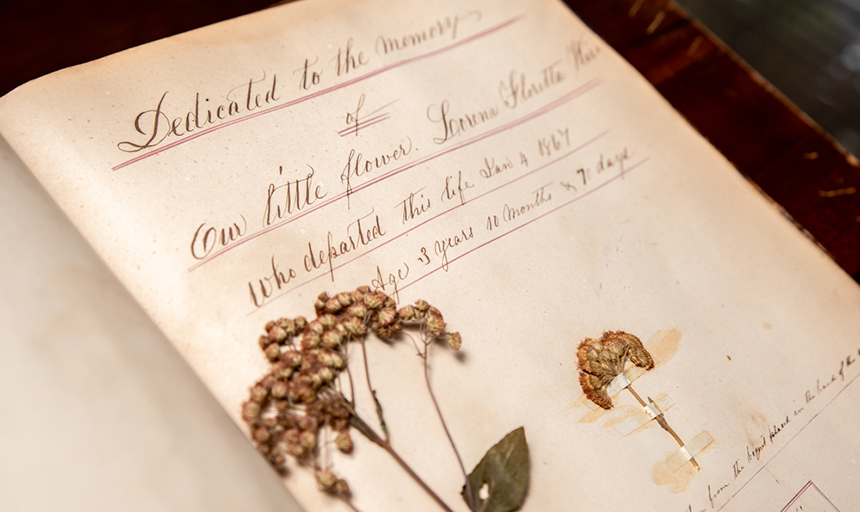 Dedicated to the memory
of
Our little flower. Lorena Floretta
Who departed this life Jan 4 1867
Age 3 years 10 months & 7 days
from the
in the hand of the